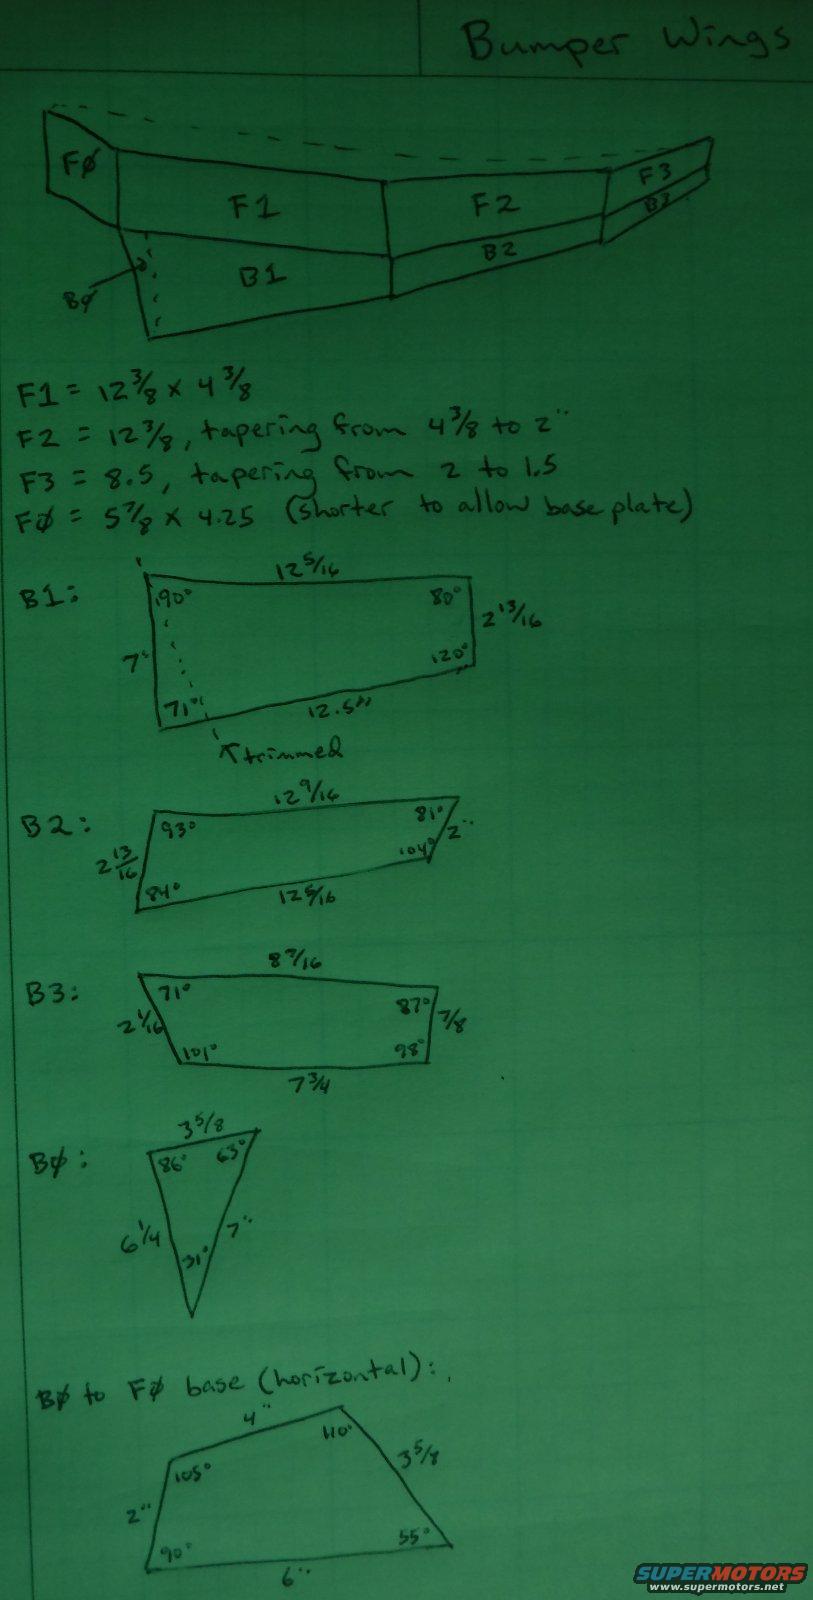 Bumper Wings
FØ
F1
F2
F3
B3
B2
B1
BØ
F1 = 12 3/8 x 4 3/8
F2 = 12 3/8, tapering from 4 3/8 to 2"
F3 = 8.5, tapering from 2 to 1.5
FØ = 5 7/8 x 4.25 (shorter to allow base plate)
B1:
12 5/16
90°
80°
2 13/16
7"
120°
71°
12.5"
trimmed
B2:
12 9/16
93°
81°
2"
2 13/16
104°
84°
12 5/16
B3:
71°
87°
7/8
2 1/16
101°
98°
7 3/4
BØ:
3 5/8
86°
63°
6 1/4
7"
31°
BØ to FØ base (horizontal):
4"
110°
105°
3 5/8
2"
90°
55°
6"
SUPERMOTORS
www.supermotors.net